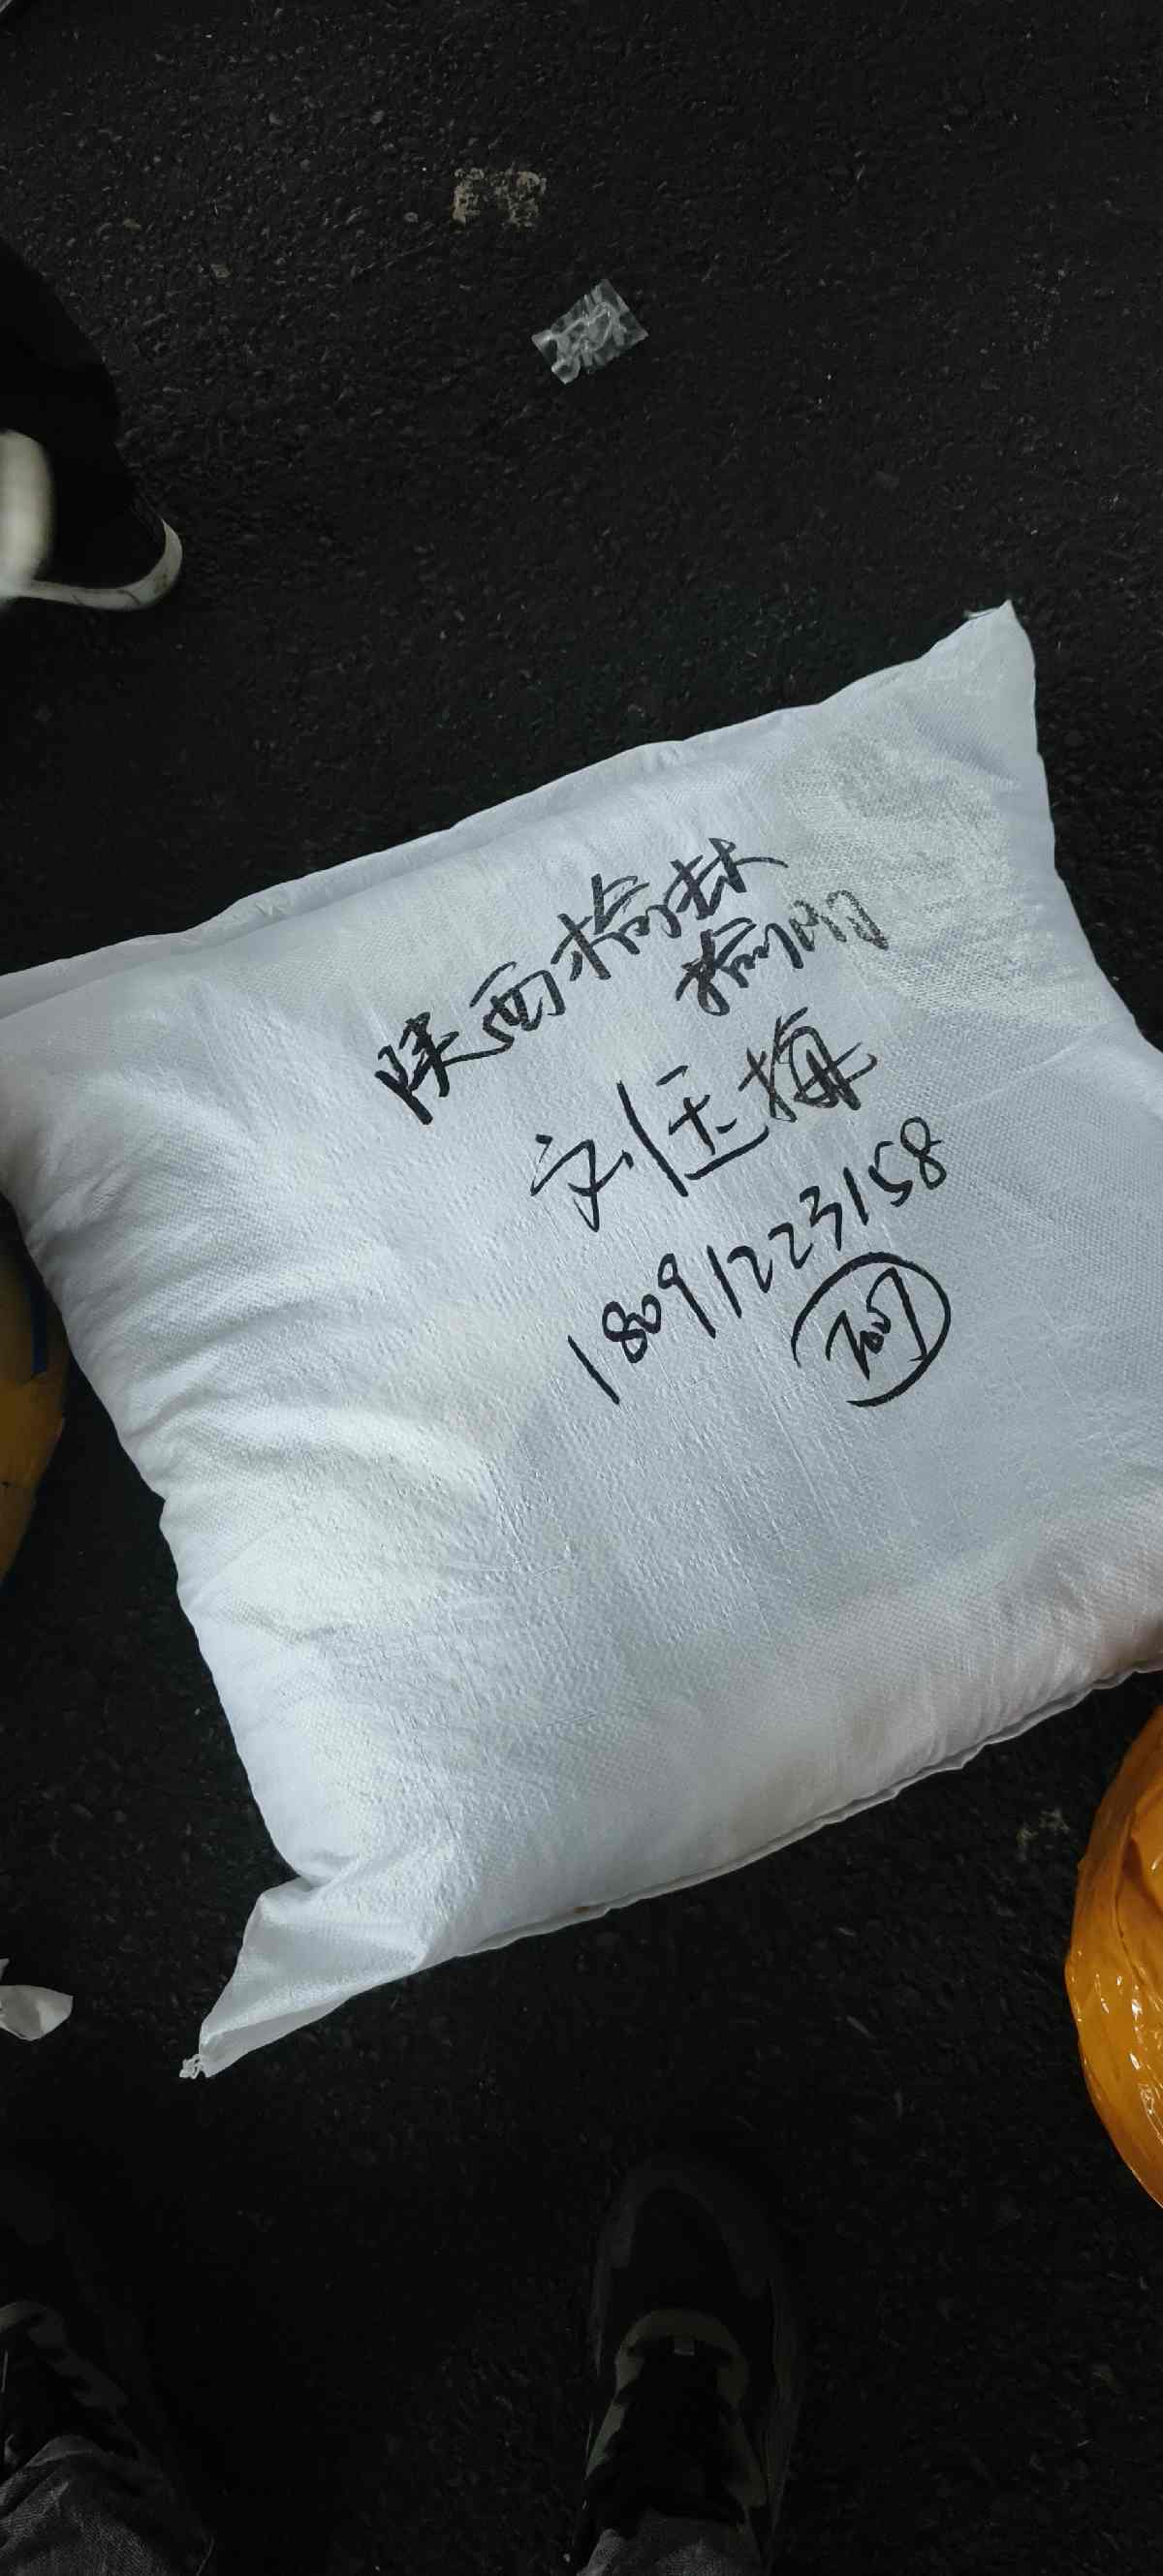 陕西榆林
榆阳
刘匡梅
18091223158